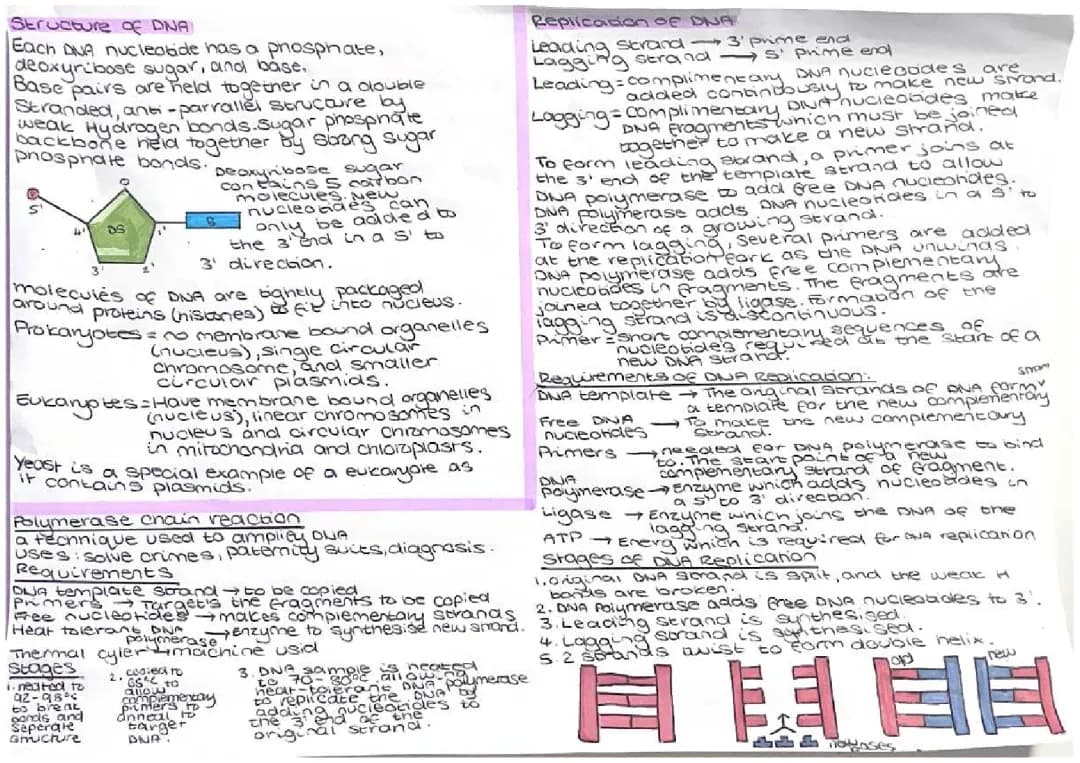 Structure of DNA
Each DNA nucleotide has a phosphate,
deoxyribose sugar, and base.
Base pairs are held together in a double
stranded, anti-parrallel structure by
weak Hydrogen bonds. Sugar phosphate
backbone held together by strong sugar
phosphate bonds.
Deoxyribose sugar
contains 5 carbon
molecules. New
nucleotides can
only be added to
the 3' end in a 5' to
3' direction.
P
5'
O
4'
DS
1'
B
3'
2'
molecules of DNA are tightly packaged
around proteins (histones) to fit into nucleus.
Prokaryotes = no membrane bound organelles
(nucleus), single circular
chromosome, and smaller
circular plasmids.
Eukaryotes = Have membrane bound organelles
(nucleus), linear chromosomes in
nucleus and circular chromosomes
in mitochondria and chloroplasts.
Yeast is a special example of a eukaryote as
it contains plasmids.
Polymerase chain reaction
a technique used to amplify DNA
uses: solve crimes, paternity suits, diagnosis.
Requirements
DNA template strand → to be copied
Primers → Target's the fragments to be copied
Free nucleotides → makes complementary strands
Heat tolerant DNA polymerase → enzyme to synthesise new strand.
Thermal cyler → machine usid
Stages
1. heated to
92-98°C
to break
bonds and
seperate
structure
2. cooled to
65°C to
allow
complementary
primers to
anneal to
target
DNA.
3. DNA sample is heated
to 70-80°C allowing
heat-tolerant DNA polymerase
to replicate the DNA by
adding nucleotides to
the 3' end of the
original strand.
Replication of DNA
Leading strand → 3' prime end
Lagging strand → 5' prime end
Leading = complimentary DNA nucleotides are
added continously to make new strand.
Lagging = complimentary DNA nucleotides make
DNA fragments which must be joined
together to make a new strand.
To form leading strand, a primer joins at
the 3' end of the template strand to allow
DNA polymerase to add free DNA nucleotides.
DNA polymerase adds DNA nucleotides in a 5' to
3' direction of a growing strand.
To form lagging, several primers are added
at the replication fork as the DNA unwinds.
DNA polymerase adds free complementary
nucleotides in fragments. The fragments are
joined together by ligase. Formation of the
lagging strand is discontinuous.
Primer = short complementary sequences of
nucleotides required at the start of a
new DNA strand.
Requirements of DNA Replication:
DNA template → The original strands of DNA form
a template for the new complementary
strand
Free DNA nucleotides → To make the new complementary
strand.
Primers → needed for DNA polymerase to bind
to. The start point of a new
complementary strand of fragment.
DNA polymerase → Enzyme which adds nucleotides in
a 5' to 3' direction.
Ligase → Enzyme which joins the DNA of the
lagging strand.
ATP → Energy which is required for DNA replication
Stages of DNA Replication
1. original DNA strand is split, and the weak H
bonds are broken.
2. DNA Polymerase adds free DNA nucleotides to 3'.
3. Leading strand is synthesised.
4. Lagging strand is synthesised.
5. 2 strands twist to form double helix.
old
new